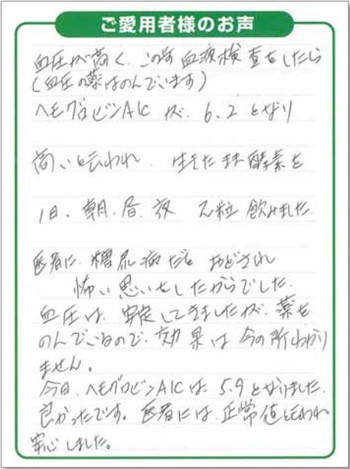 ご愛用者様のお声
血圧が高く、この前血液検査をしたら
(血圧の薬はのんでいます)
ヘモグロビンA1Cが、6.2となり
高いと云われ、生きたまま酵素を
1日、朝、昼、夜 2粒飲みました。
医者に、糖尿病だとおどされ
怖い思いをしたからでした。
血圧は、安定してきましたが、薬を
のんでいるので、効果は今の所わかり
ません。
今日、ヘモグロビンA1Cは、5.9となりました。
良かったです。医者には、正常値と云われ
安心しました。